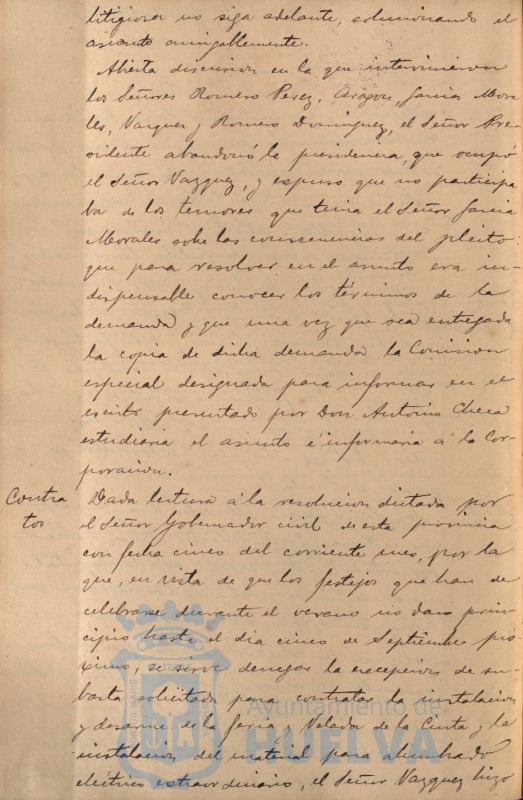 litigiosa no siga adelante, solucionando el
asunto amigablemente.
Abierta discusion en la que intervinieron
los Señores Romero Perez, Aragon, Garcia Mora-
les, Vazquez y Romero Dominguez, el Señor Pre-
sidente abandonó la presidencia, que ocupó
el Señor Vazquez, y espuso que no participa
ba de los temores que tenia el Señor Garcia
Morales sobre las consecuencias del pleito:
que para resolver en el asunto era in-
dispensable conocer los términos de la
demanda y que una vez que sea entregada
la copia de dicha demanda la Comision
especial designada para informar en el
escrito presentado por Don Antonio Checa
estudiaria el asunto é informaria á la Cor-
poracion.
Contra
tos
Dada lectura á la resolucion dictada por
el Señor Gobernador civil de esta provincia
con fecha cinco del corriente mes, por la
que, en vista de que los festejos que han de
celebrarse durante el verano no dan prin-
cipio hasta el dia cinco de Septiembre pro-
ximo, se sirve denegar la excepcion de su-
basta solicitada para contratar la instalacion
y desarme de la feria y Velada de la Cinta y la
instalacion del material para alumbrado
electrico extraordinario, el Señor Vazquez hizo
Ayuntamiento de
HUELVA